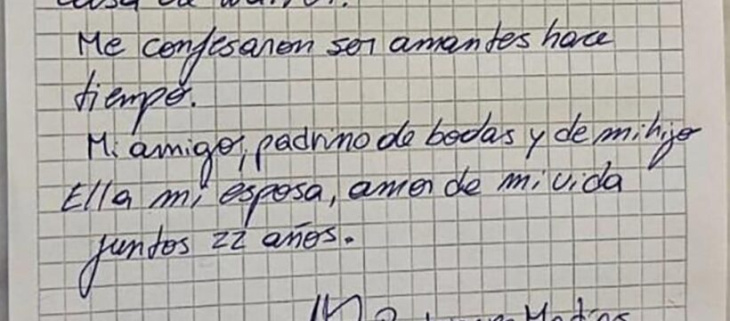 Me confesaron ser amantes hace
tiempo.
Mi amigo, padrino de bodas y de mi hijo
Ella mi esposa, amor de mi vida
juntos 22 años.